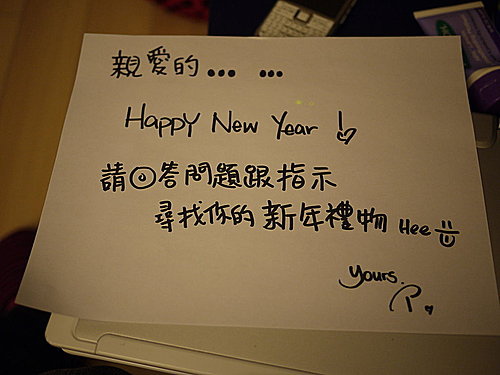 親愛的... ...
Happy New Year !
請回答問題跟指示
尋找你的新年禮物 Hee
yours.
P.